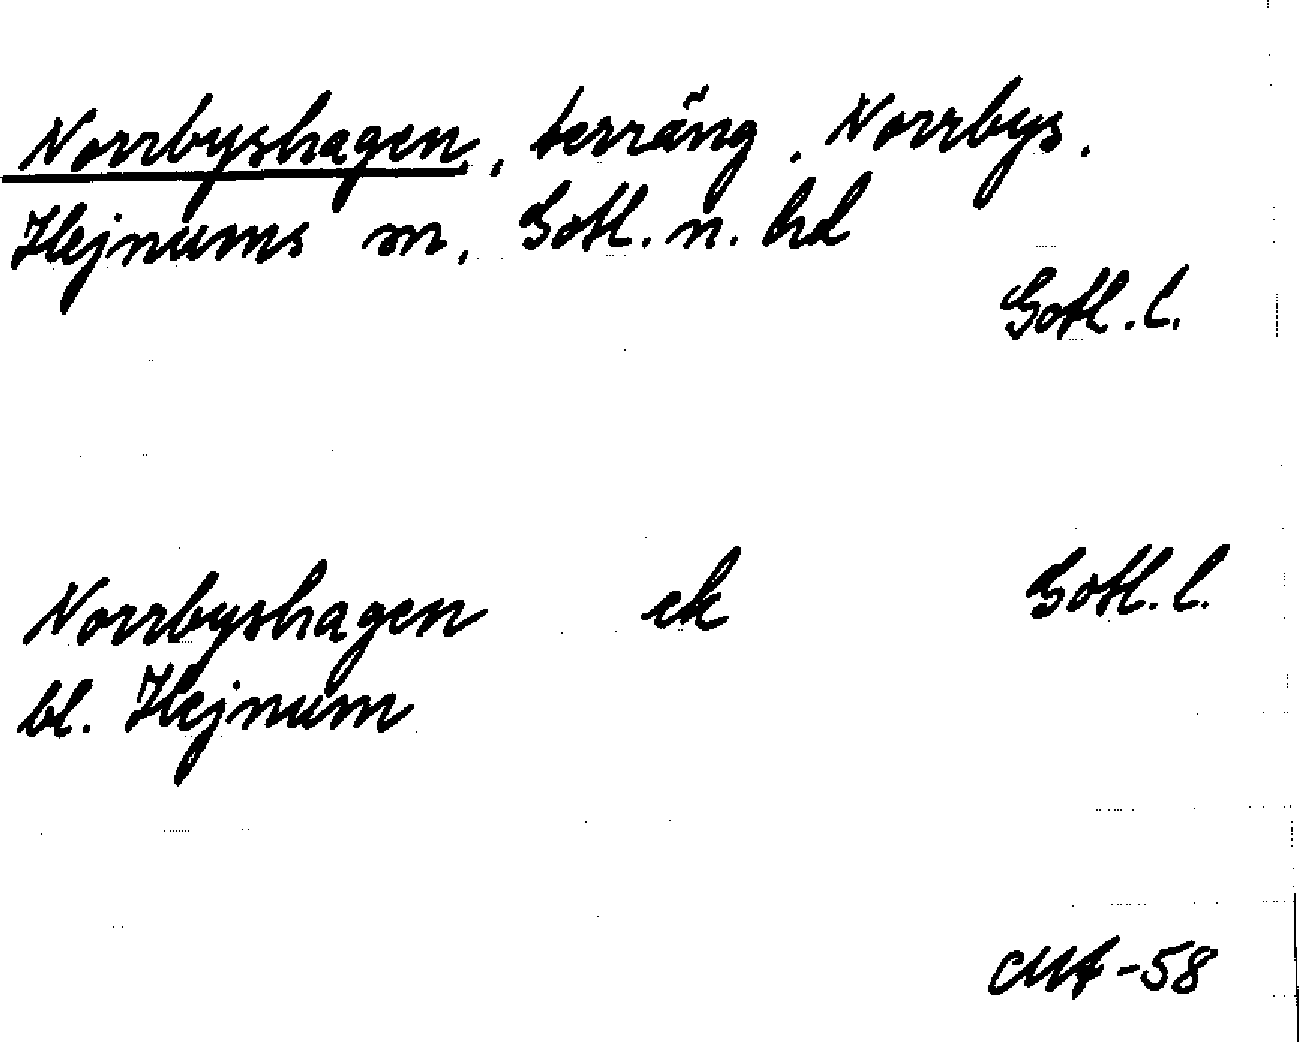 Norrbyshagen, terräng, Norrbys.
Hejnums sn, Gotl. n. hd
Gotl. l.
Norrbyshagen ek Gotl. l.
bl. Hejnum
-58